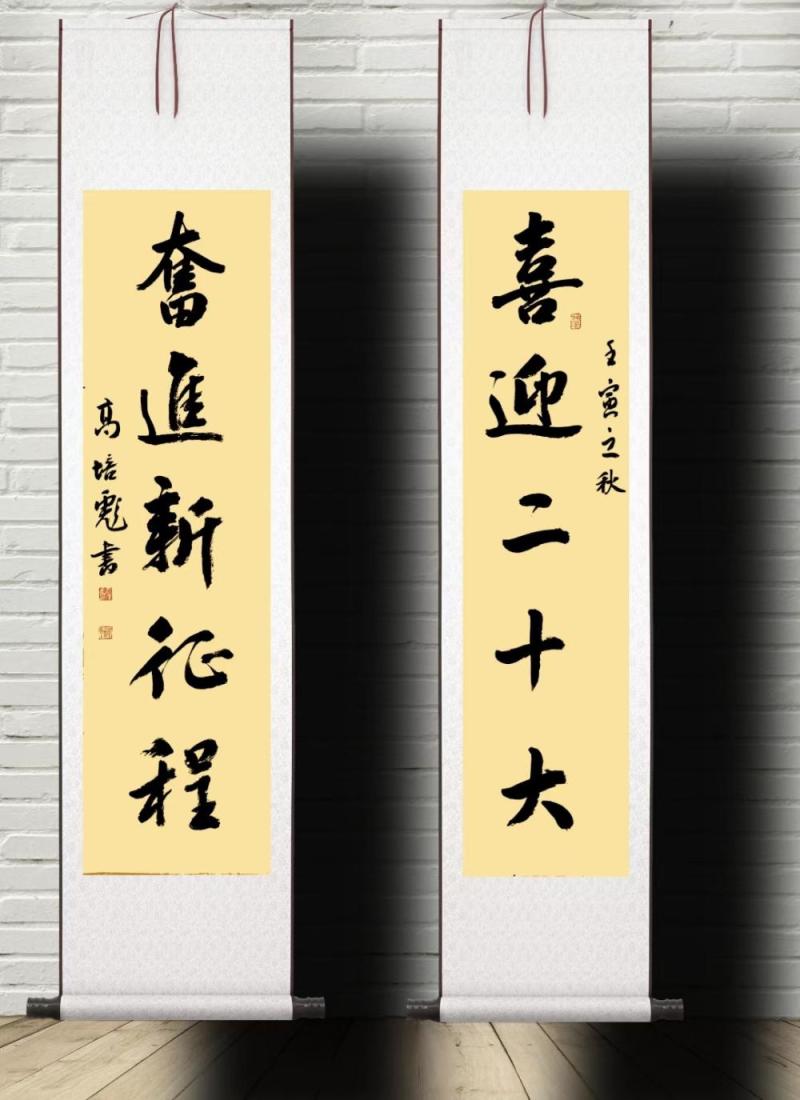 壬寅立秋
喜迎二十大
奮進新征程
高培彪書